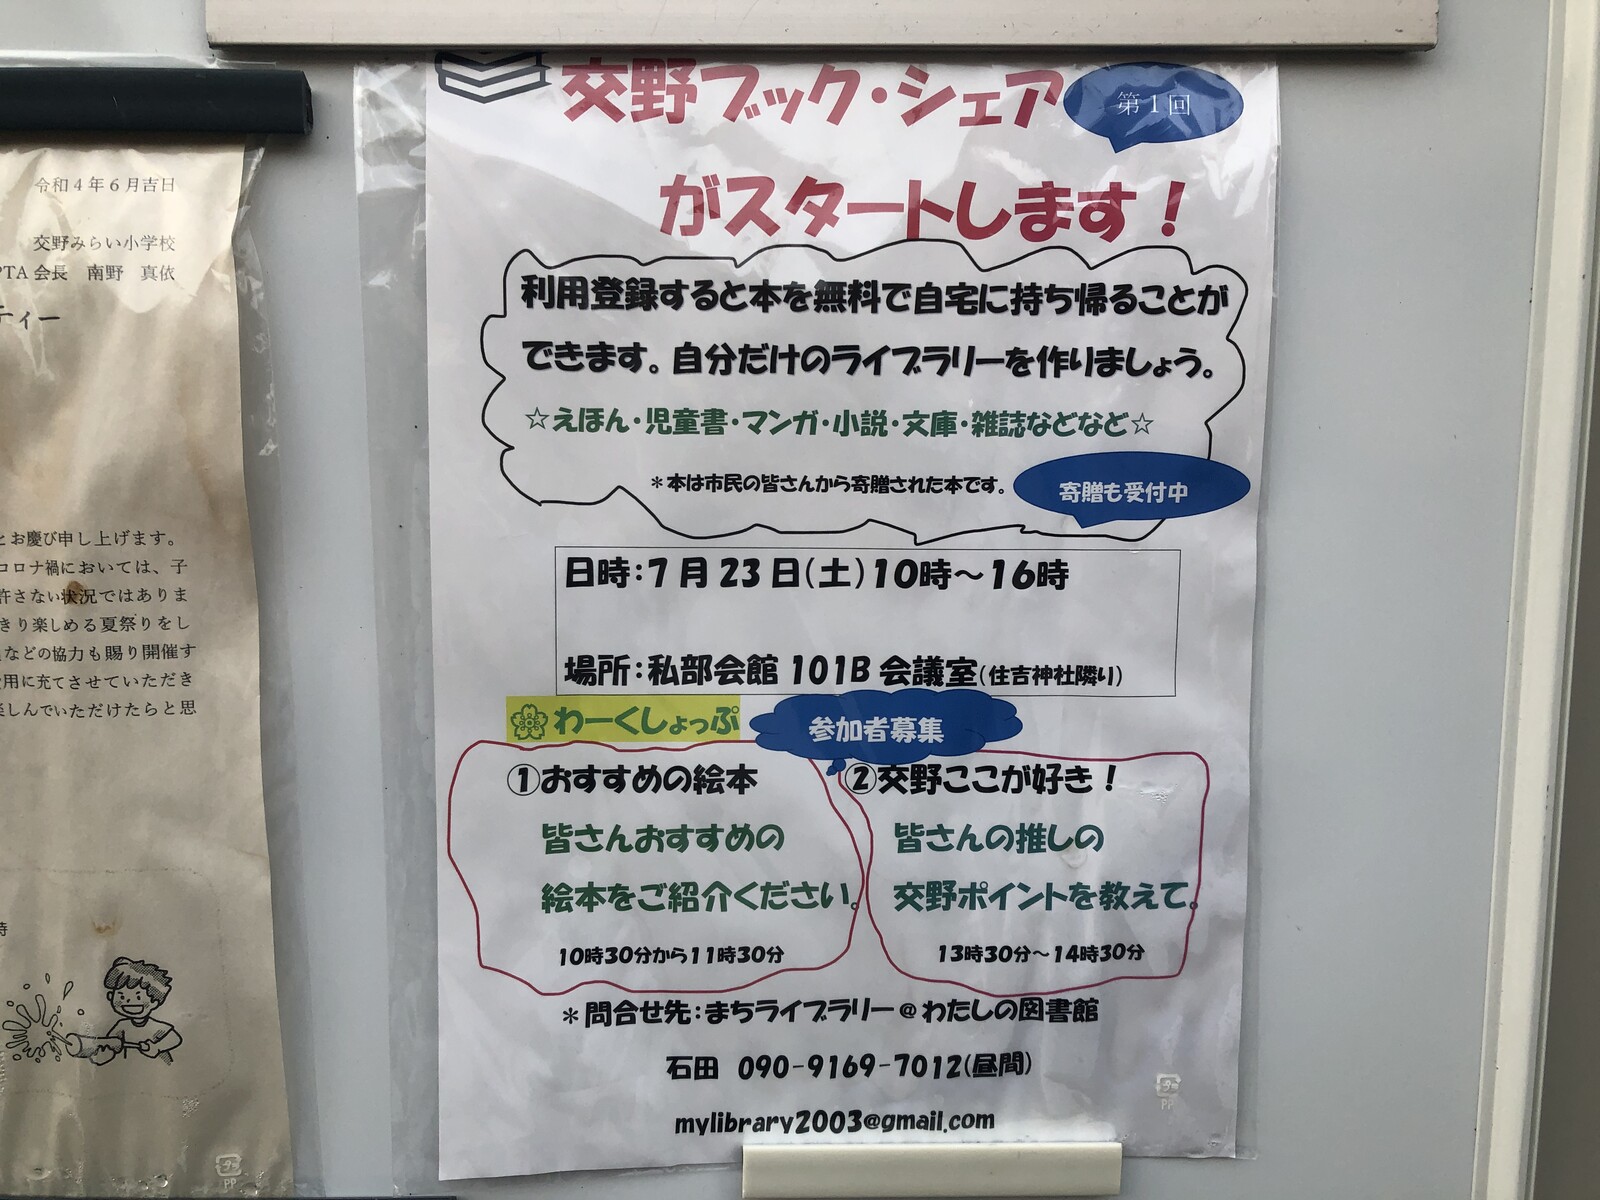 令和4年6月吉日
交野みらい小学校
PTA会長 南野 真依
ティー
とお慶び申し上げます。
コロナ禍においては、子
許さない状況ではありま
きり楽しめる夏祭りをし
などの協力も賜り開催す
用に充てさせていただき
楽しんでいただけたらと思
時
PP
交野ブック・シェア
第1回
がスタートします！
利用登録すると本を無料で自宅に持ち帰ることが
できます。自分だけのライブラリーを作りましょう。
☆えほん・児童書・マンガ・小説・文庫・雑誌などなど☆
＊本は市民の皆さんから寄贈された本です。
寄贈も受付中
日時：7月23日(土)10時～16時
場所：私部会館 101B 会議室(住吉神社隣り)
わーくしょっぷ
参加者募集
①おすすめの絵本
皆さんおすすめの
絵本をご紹介ください。
10時30分から11時30分
②交野ここが好き！
皆さんの推しの
交野ポイントを教えて。
13時30分～14時30分
＊問合せ先：まちライブラリー＠わたしの図書館
石田 090-9169-7012(昼間)
mylibrary2003@gmail.com
PP